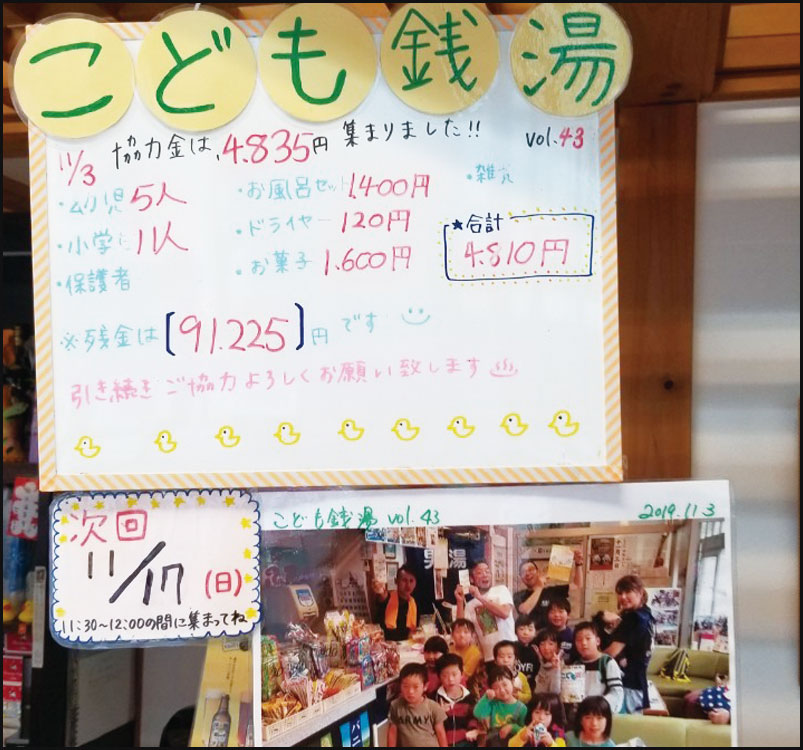 こども銭湯
協力金は、4.835円 集まりました!!
vol.43
11/3
・幼児 5人
・小学生 11人
・保護者
・お風呂セット 1.400円
・ドライヤー 120円
・お菓子 1.600円
・雑
★合計
4.810円
※残金は[91.225]円です
引き続きご協力よろしくお願い致します
次回
11/17(日)
11:30~12:00の間に集まってね
こども銭湯 vol.43
2019.11.3
男湯
ARMY